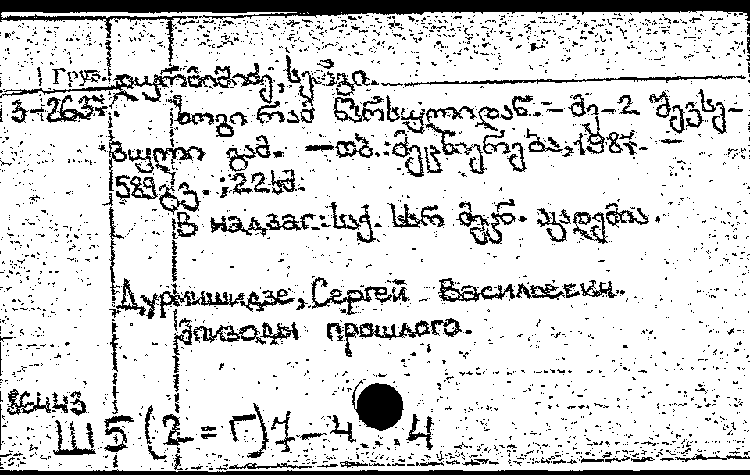 Груз. დურმიშიძე, სერგი.
3-2637. ზოგი რამ წარსულიდან.-მე-2 შევსე-
ბული გამ. —თბ.:მეცნიერება,1987. —
589გვ. ;22სმ.
В надзаг.:საქ. სსრ მეცნ. აკადემია.
Дурмишидзе, Сергей Васильевич.
Эпизоды прошлого.
86443
Ш5(2=Г)7-4...4